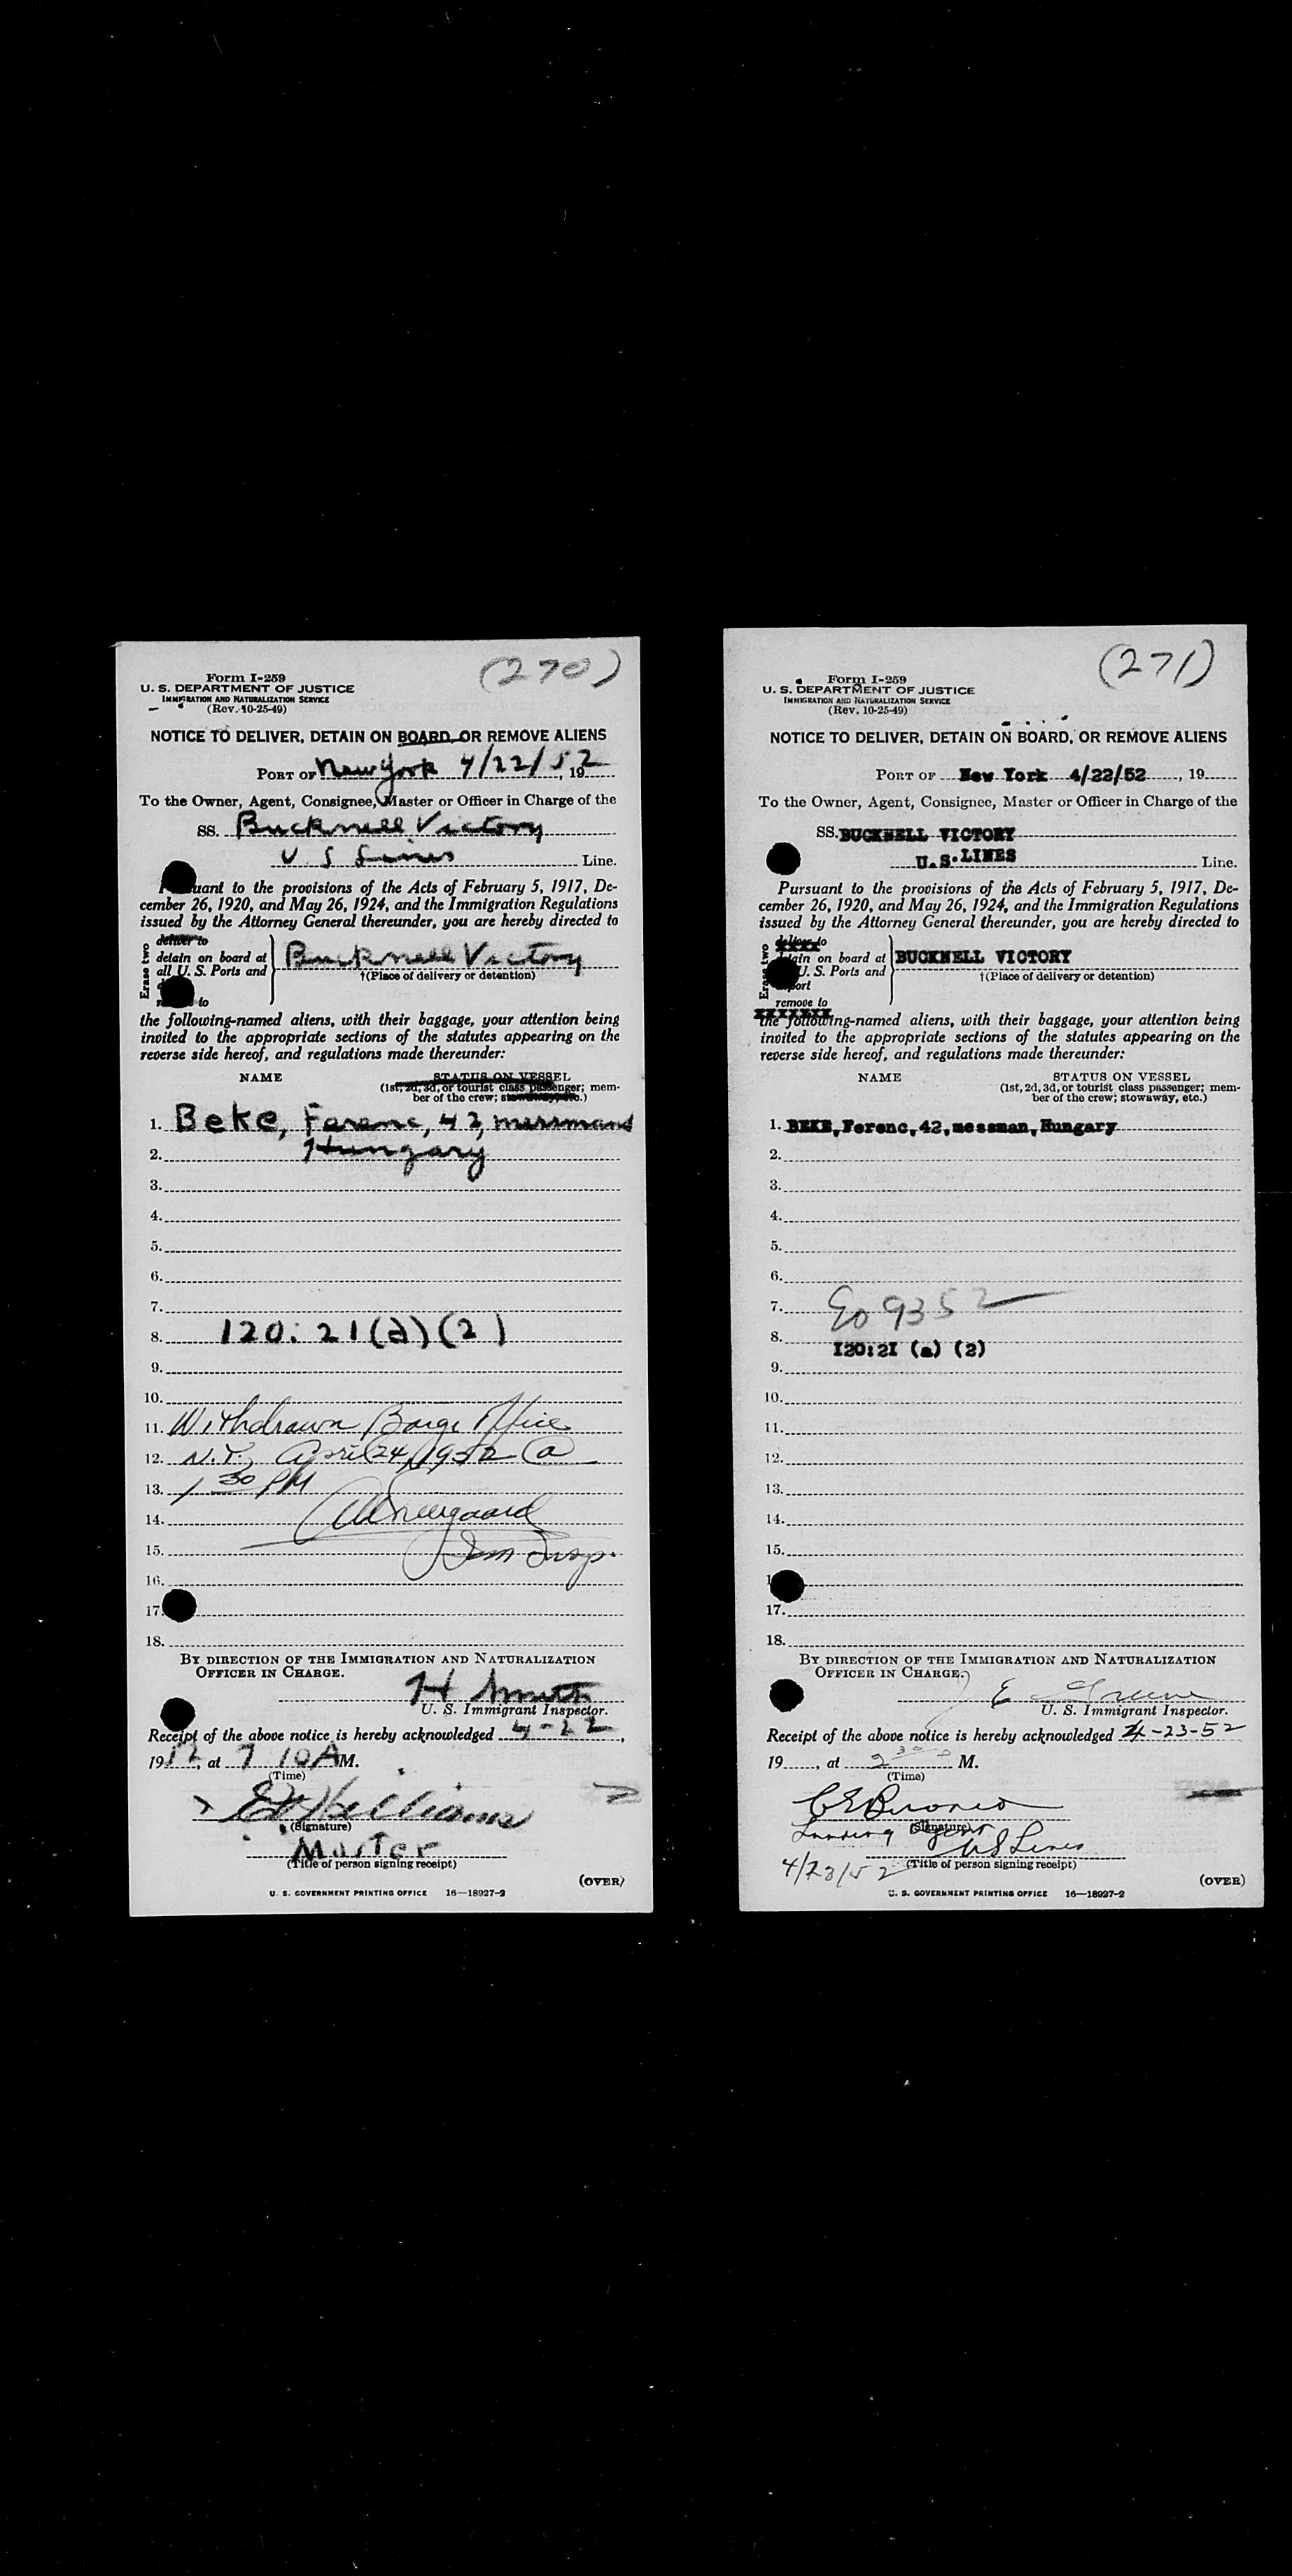 (270)
Form I-259
U. S. DEPARTMENT OF JUSTICE
IMMIGRATION AND NATURALIZATION SERVICE
(Rev. 10-25-49)
NOTICE TO DELIVER, DETAIN ON BOARD, OR REMOVE ALIENS
PORT OF New York 4/22/52, 19
To the Owner, Agent, Consignee, Master or Officer in Charge of the
SS. Bucknell Victory
U S Lines Line.
Pursuant to the provisions of the Acts of February 5, 1917, De-
cember 26, 1920, and May 26, 1924, and the Immigration Regulations
issued by the Attorney General thereunder, you are hereby directed to
Erase two
deliver to
detain on board at
all U. S. Ports and
to
Bucknell Victory
†(Place of delivery or detention)
the following-named aliens, with their baggage, your attention being
invited to the appropriate sections of the statutes appearing on the
reverse side hereof, and regulations made thereunder:
NAME STATUS ON VESSEL
(1st, 2d, 3d, or tourist class passenger; mem-
ber of the crew; stowaway, etc.)
1. Beke, Ferenc, 42, messman
2. Hungary
3.
4.
5.
6.
7.
8. 120:21(a)(2)
9.
10.
11. Withdrawn Barge Office
12. N.Y., April 24, 1952 @
13. 1 30 PM
14.
15. Imm Insp.
16.
17.
18.
BY DIRECTION OF THE IMMIGRATION AND NATURALIZATION
OFFICER IN CHARGE.
H Smith
U. S. Immigrant Inspector.
Receipt of the above notice is hereby acknowledged 4-22,
1952, at 7 10 A M.
(Time)
Williams
(Signature)
Master
(Title of person signing receipt)
(OVER)
U. S. GOVERNMENT PRINTING OFFICE 16—18927-2
(271)
Form I-259
U. S. DEPARTMENT OF JUSTICE
IMMIGRATION AND NATURALIZATION SERVICE
(Rev. 10-25-49)
NOTICE TO DELIVER, DETAIN ON BOARD, OR REMOVE ALIENS
PORT OF New York 4/22/52, 19
To the Owner, Agent, Consignee, Master or Officer in Charge of the
SS. BUCKNELL VICTORY
U.S. LINES Line.
Pursuant to the provisions of the Acts of February 5, 1917, De-
cember 26, 1920, and May 26, 1924, and the Immigration Regulations
issued by the Attorney General thereunder, you are hereby directed to
Erase two
deliver to
detain on board at
U. S. Ports and
port
remove to
BUCKNELL VICTORY
†(Place of delivery or detention)
the following-named aliens, with their baggage, your attention being
invited to the appropriate sections of the statutes appearing on the
reverse side hereof, and regulations made thereunder:
NAME STATUS ON VESSEL
(1st, 2d, 3d, or tourist class passenger; mem-
ber of the crew; stowaway, etc.)
1. BEKE, Ferenc, 42, messman, Hungary
2.
3.
4.
5.
6.
7. Eo 9352
8. I20:2I (a) (2)
9.
10.
11.
12.
13.
14.
15.
1
17.
18.
BY DIRECTION OF THE IMMIGRATION AND NATURALIZATION
OFFICER IN CHARGE.
E Greene
U. S. Immigrant Inspector.
Receipt of the above notice is hereby acknowledged 4-23-52
19, at 2 30 M.
(Time)
(Signature)
Landing Agent
US Lines
4/23/52 (Title of person signing receipt)
(OVER)
U. S. GOVERNMENT PRINTING OFFICE 16—18927-2